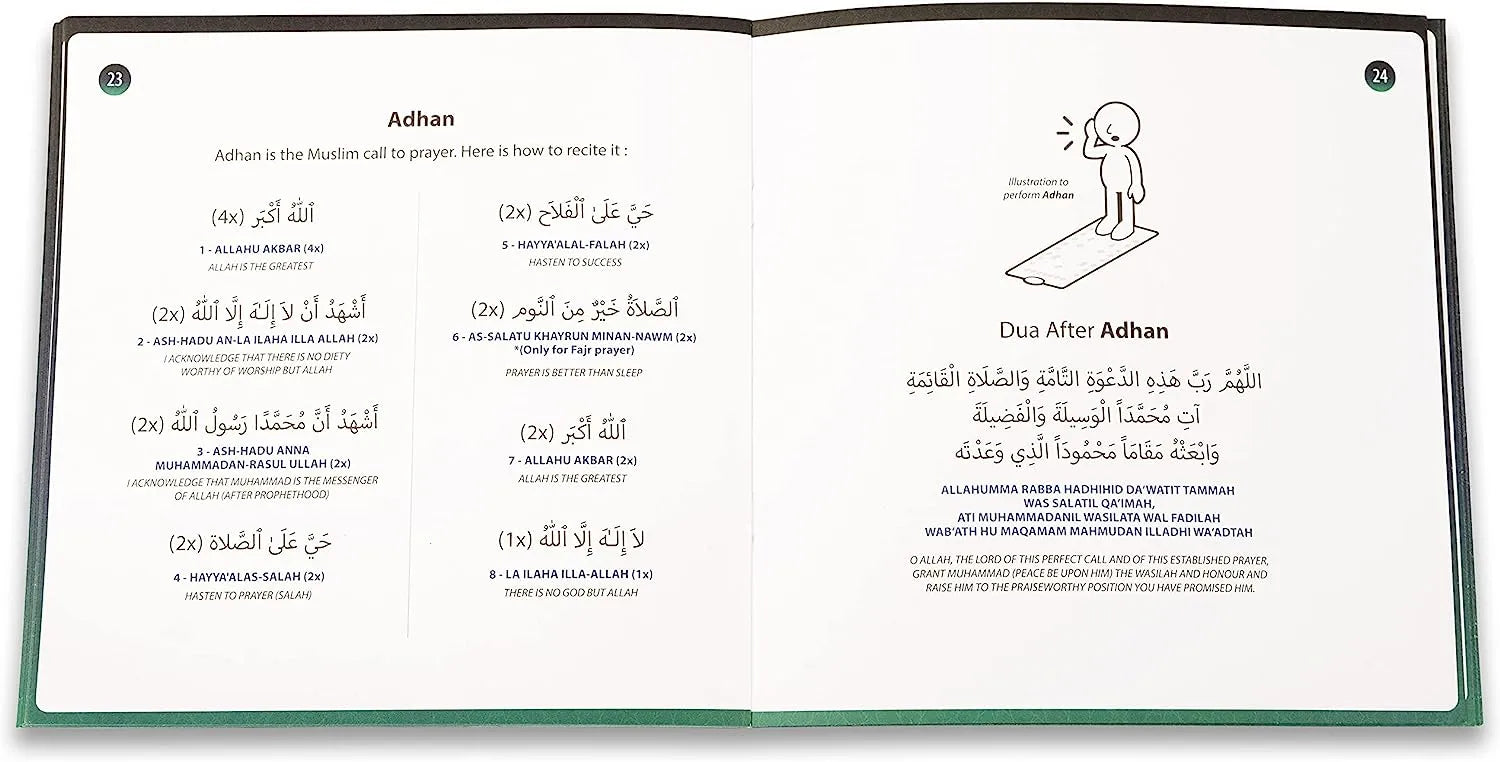 23
Adhan
Adhan is the Muslim call to prayer. Here is how to recite it :
ٱللّٰهُ أَكْبَر (4x)
1 - ALLAHU AKBAR (4x)
ALLAH IS THE GREATEST
أَشْهَدُ أَنْ لاَ إِلَـٰهَ إِلَّا ٱللّٰهُ (2x)
2 - ASH-HADU AN-LA ILAHA ILLA ALLAH (2x)
I ACKNOWLEDGE THAT THERE IS NO DIETY
WORTHY OF WORSHIP BUT ALLAH
أَشْهَدُ أَنَّ مُحَمَّدًا رَسُولُ ٱللّٰهُ (2x)
3 - ASH-HADU ANNA
MUHAMMADAN-RASUL ULLAH (2x)
I ACKNOWLEDGE THAT MUHAMMAD IS THE MESSENGER
OF ALLAH (AFTER PROPHETHOOD)
حَيَّ عَلَىٰ ٱلصَّلاة (2x)
4 - HAYYA'ALAS-SALAH (2x)
HASTEN TO PRAYER (SALAH)
حَيَّ عَلَىٰ ٱلْفَلاَح (2x)
5 - HAYYA'ALAL-FALAH (2x)
HASTEN TO SUCCESS
ٱلصَّلاَةُ خَيْرٌ مِنَ ٱلنَّوم (2x)
6 - AS-SALATU KHAYRUN MINAN-NAWM (2x)
*(Only for Fajr prayer)
PRAYER IS BETTER THAN SLEEP
ٱللّٰهُ أَكْبَر (2x)
7 - ALLAHU AKBAR (2x)
ALLAH IS THE GREATEST
لاَ إِلَـٰهَ إِلَّا ٱللّٰهُ (1x)
8 - LA ILAHA ILLA-ALLAH (1x)
THERE IS NO GOD BUT ALLAH
24
Illustration to
perform Adhan
Dua After Adhan
اللَّهُمَّ رَبَّ هَذِهِ الدَّعْوَةِ التَّامَّةِ وَالصَّلَاةِ الْقَائِمَةِ
آتِ مُحَمَّدَاً الْوَسِيلَةَ وَالْفَضِيلَةَ
وَابْعَثْهُ مَقَامَاً مَحْمُودَاً الَّذِي وَعَدْتَه
ALLAHUMMA RABBA HADHIHID DA'WATIT TAMMAH
WAS SALATIL QA'IMAH,
ATI MUHAMMADANIL WASILATA WAL FADILAH
WAB'ATH HU MAQAMAM MAHMUDAN ILLADHI WA'ADTAH
O ALLAH, THE LORD OF THIS PERFECT CALL AND OF THIS ESTABLISHED PRAYER,
GRANT MUHAMMAD (PEACE BE UPON HIM) THE WASILAH AND HONOUR AND
RAISE HIM TO THE PRAISEWORTHY POSITION YOU HAVE PROMISED HIM.